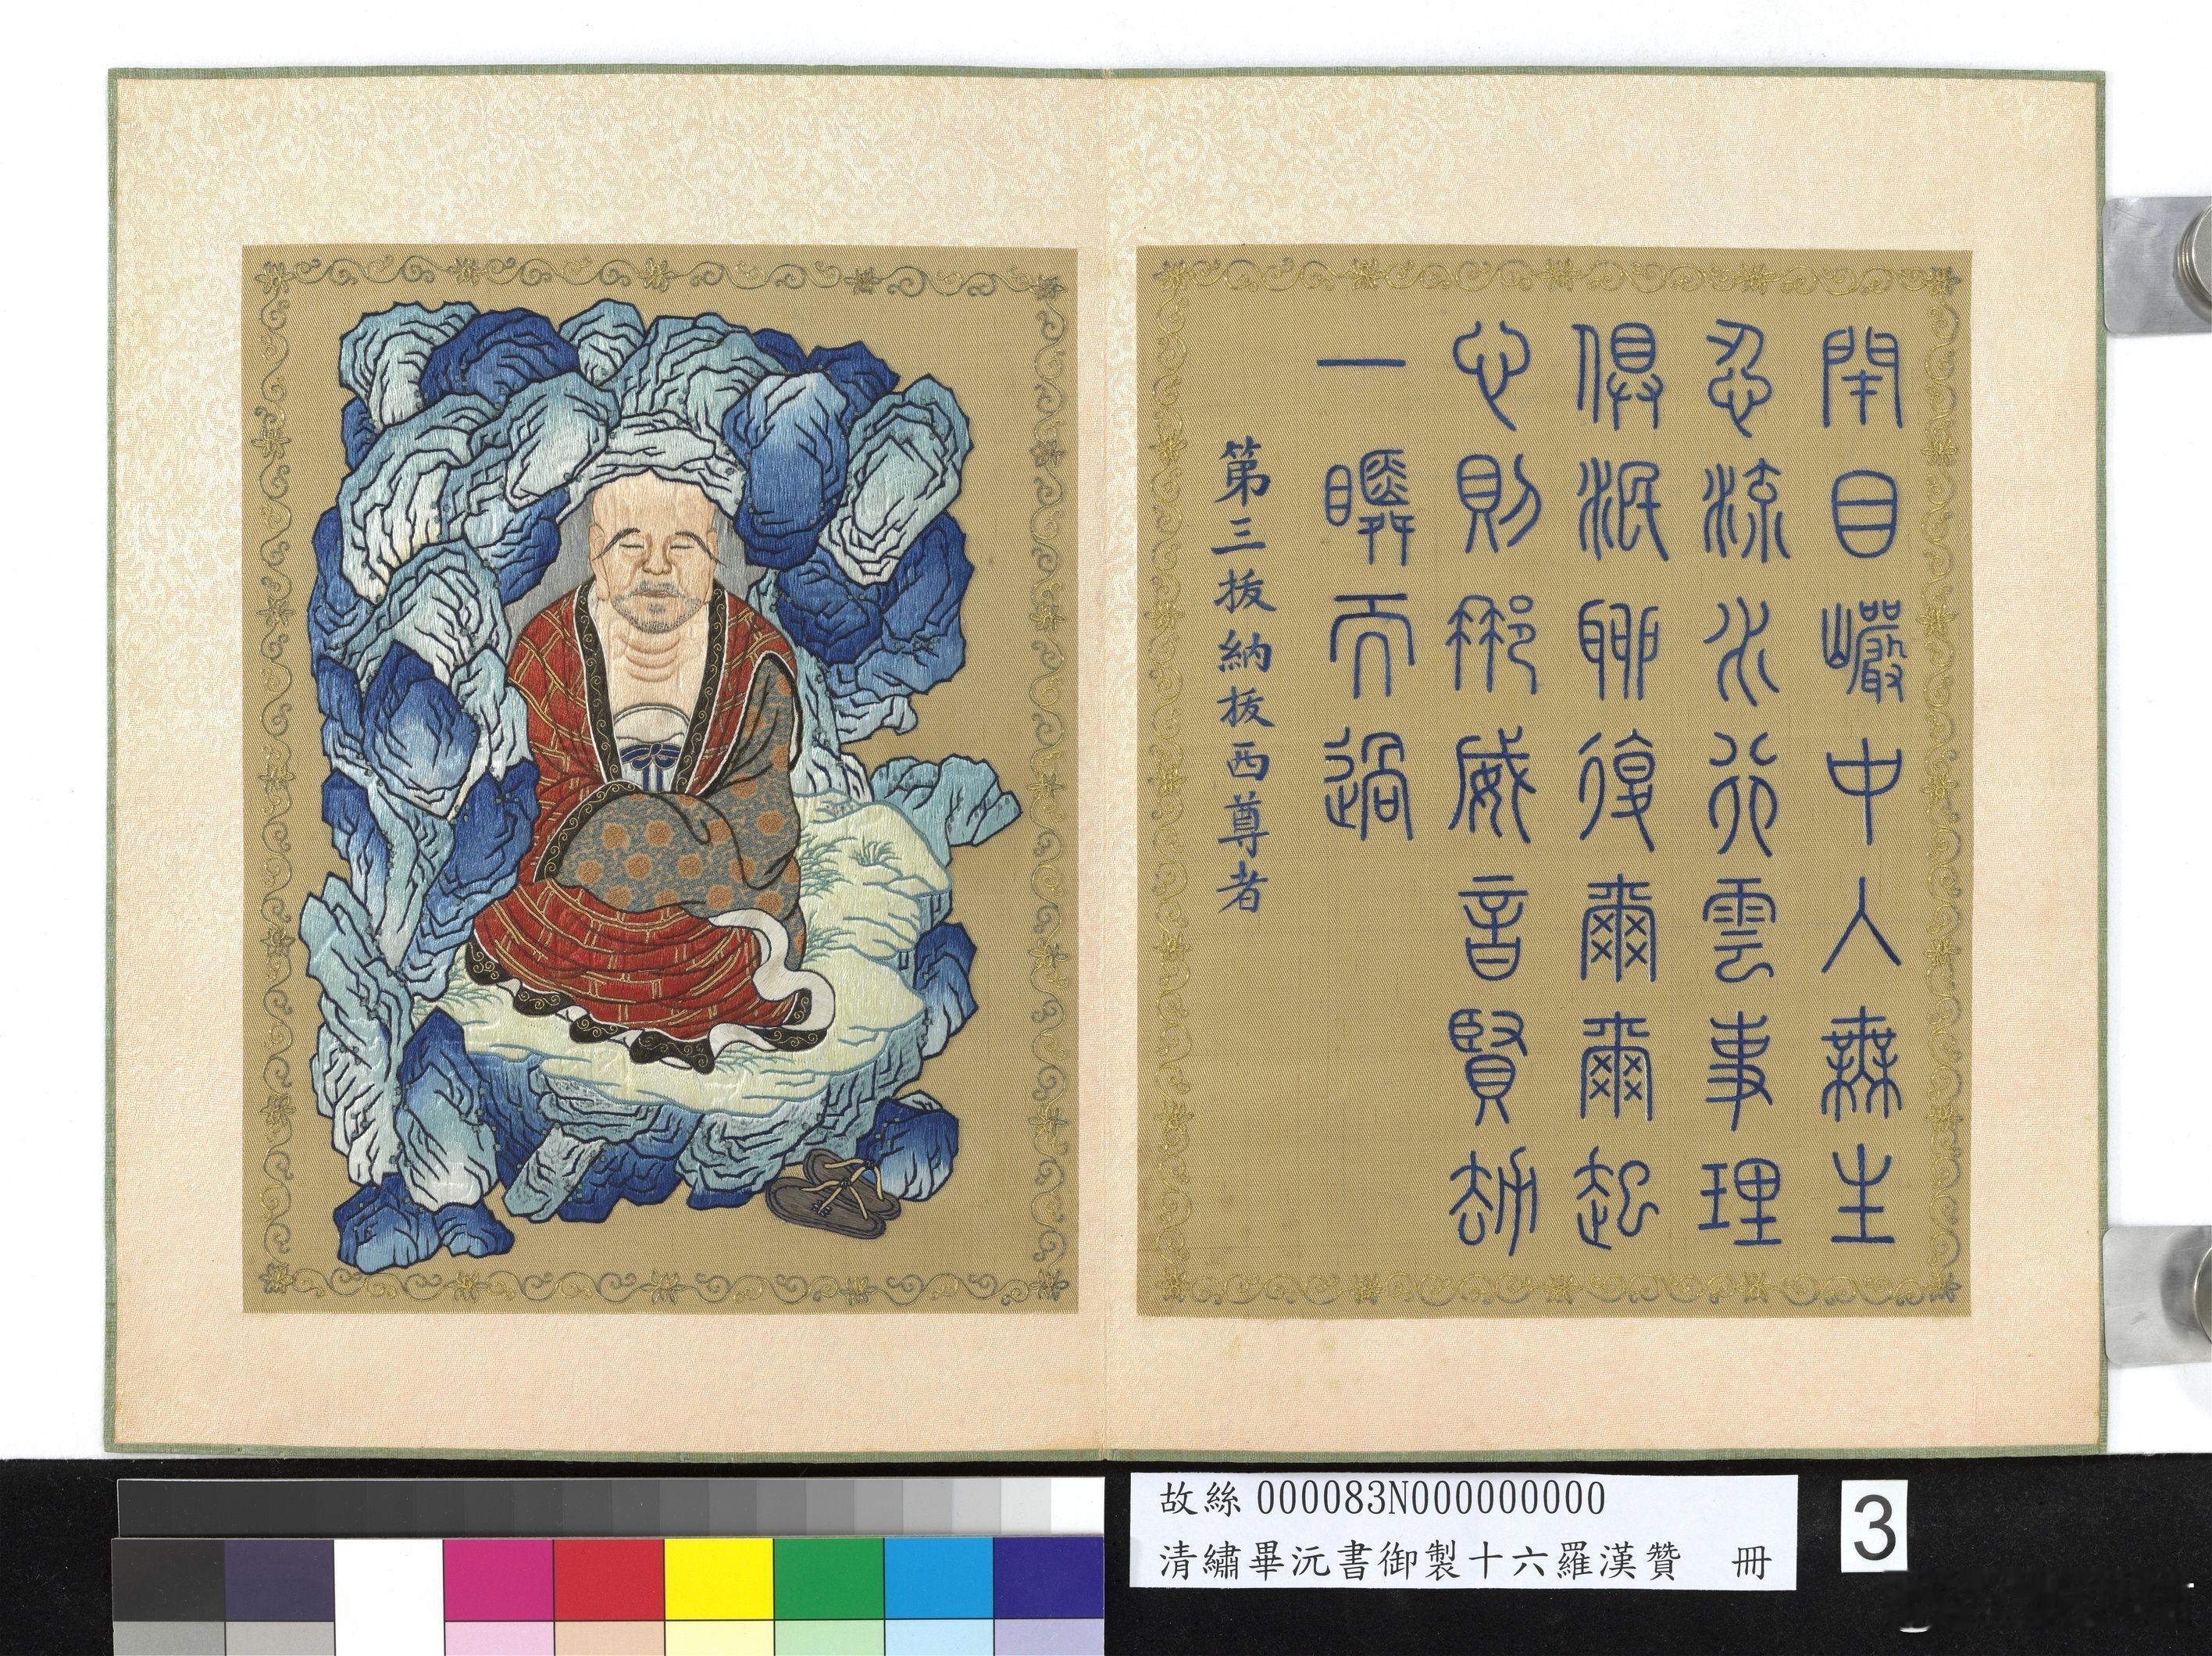 閉目巖中人無生
忍流水行雲事理
俱泯聊復爾爾起
心則那威音賢劫
一瞬而過
第三拔納拔西尊者
故絲000083N000000000
清繡畢沅書御製十六羅漢贊 冊
3